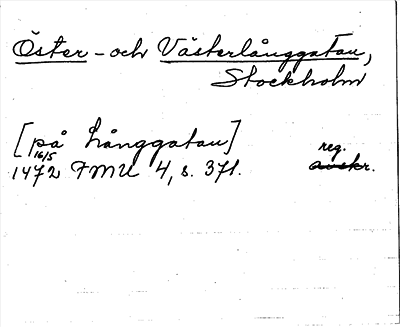 Öster- och Västerlånggatan,
Stockholm
[på långgatan]
16/5
1472 FMU 4, s. 371.
reg.
avskr.